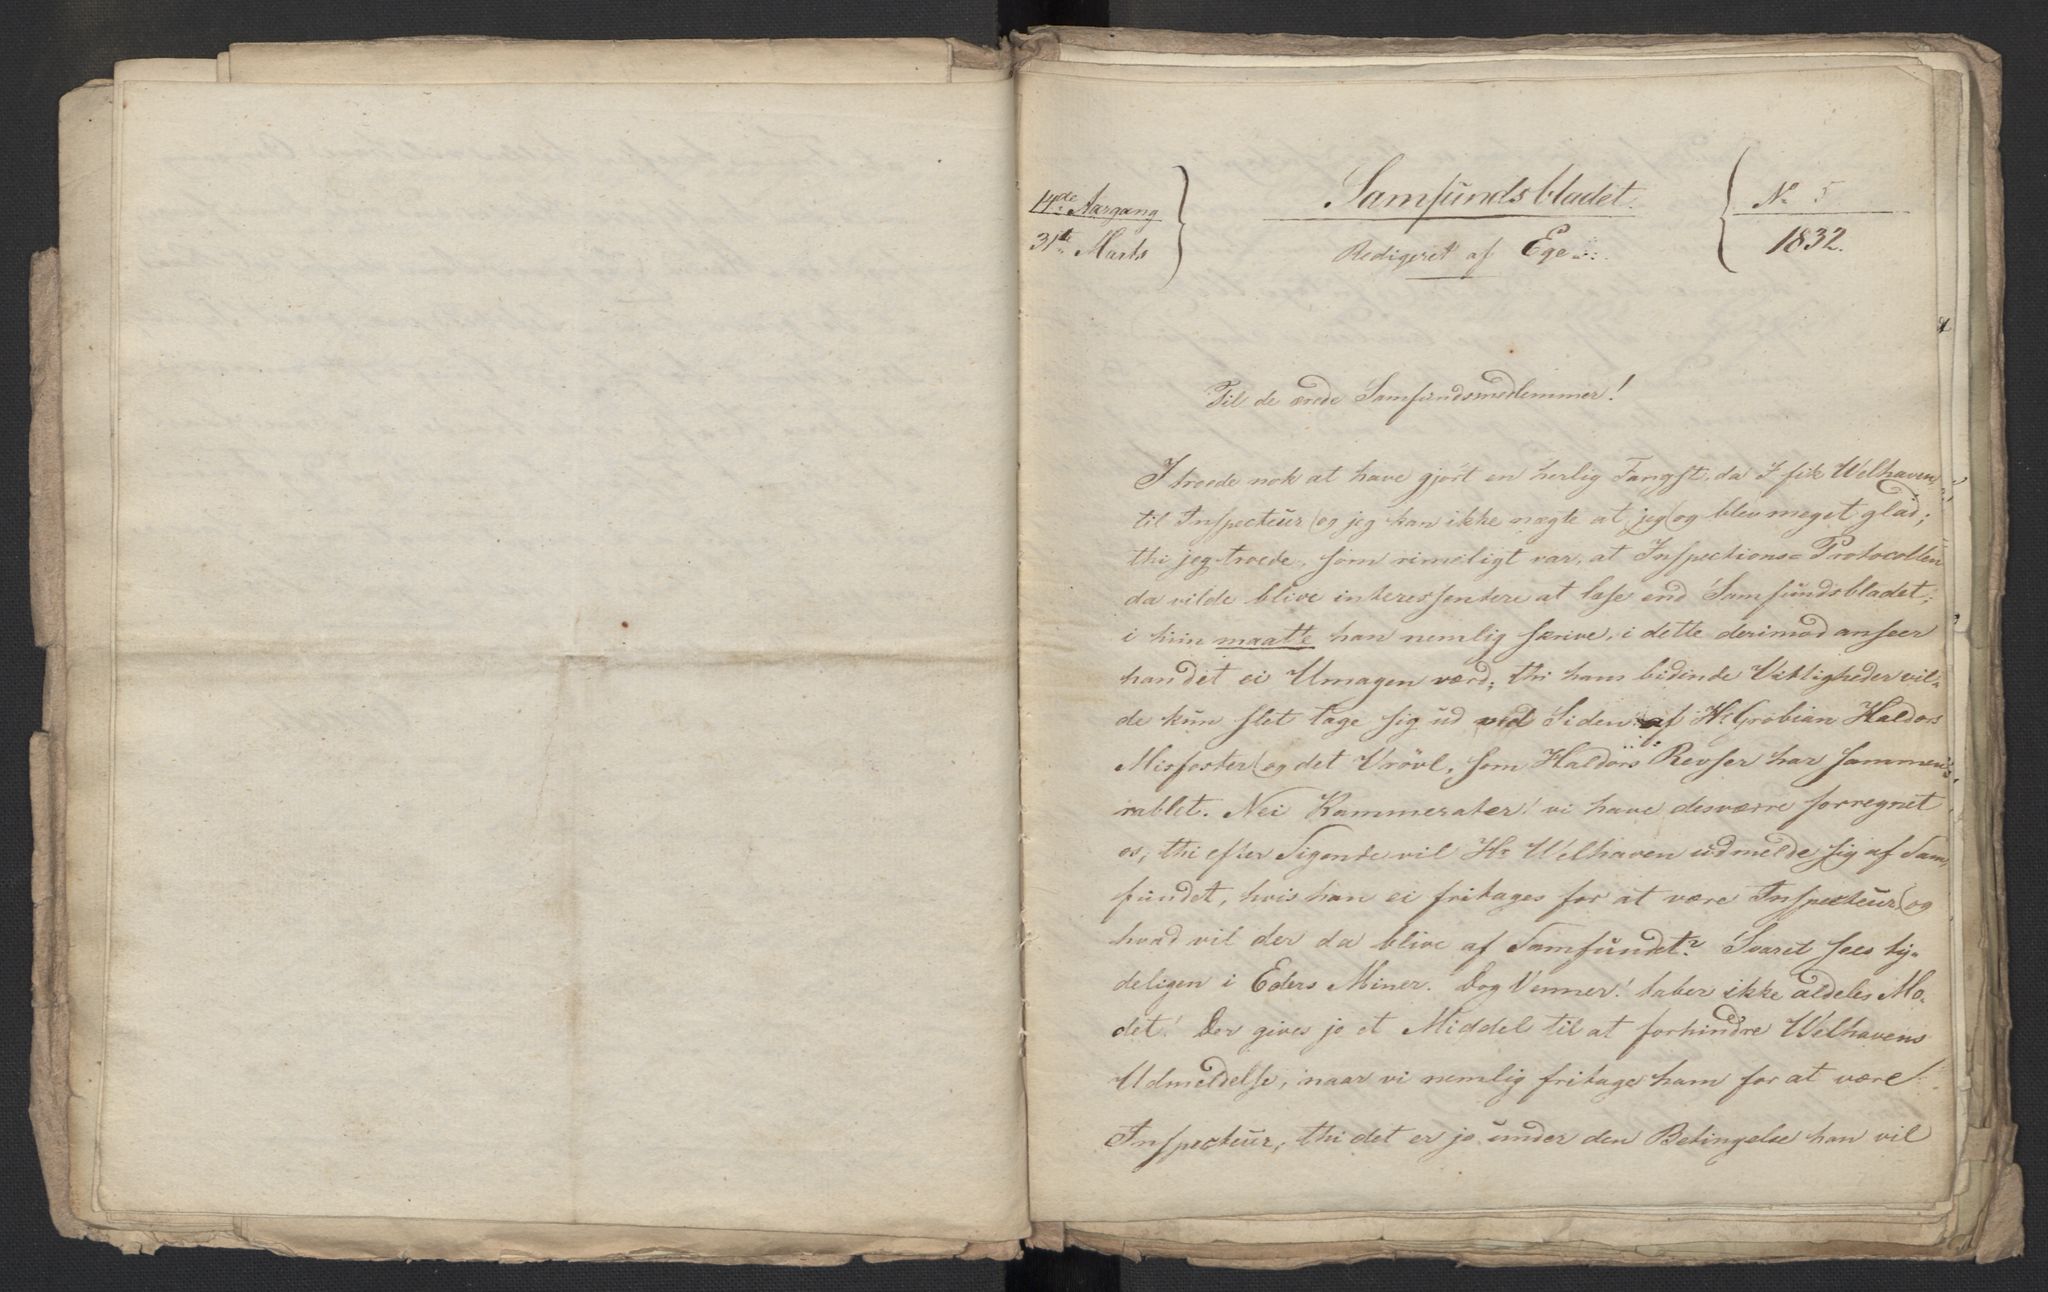 14de Aargang
31te Marts
Samfundsbladet.
Redigeret af Ege
No 5
1832.
Til de ærede Samfundsmedlemmer!
I troede nok at have gjort en herlig Fangst, da I fik Welhaven
til Inspecteur (og jeg kan ikke nægte at jeg og blev meget glad;
thi jeg troede, som rimeligt var, at Inspections-Protocollen
da vilde blive interessantere at læse end Samfundsbladet;
i hiin maatte han nemlig skrive, i dette derimod anseer
han det ei Umagen værd; thi hans bidende Vittigheder vil-
de kun slet tage sig ud ved Siden af Hr Grobian Haldors
Misfoster (og det Vrøvl, som Haldors Revser har sammen-
rablet. Nei Kammerater! vi have desværre forregnet
os, thi efter Sigende vil Hr Welhaven udmelde sig af Sam-
fundet, hvis han ei fritages for at være Inspecteur (og
hvad vil der da blive af Samfundet? Svaret sees ty-
deligen i Eders Miner. Dog Venner! taber ikke aldeles Mo-
det! Der gives jo et Middel til at forhindre Welhavens
Udmeldelse, naar vi nemlig fritage ham for at være
Inspecteur, thi det er jo under den Betingelse han vil